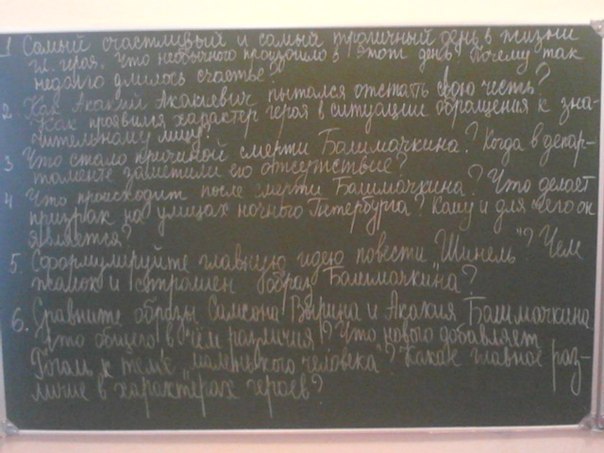 1 Самый счастливый и самый трагичный день в жизни
гл. героя. Что необычного произошло в этот день? Почему так
недолго длилось счастье?
2 Как Акакий Акакиевич пытался отстать свою честь?
Как проявился характер героя в ситуации обращения к зна-
чительному лицу?
3 Что стало причиной смерти Башмачкина? Когда в депар-
таменте заметили его отсутствие?
4 Что происходит после смерти Башмачкина? Что делает
призрак на улицах ночного Петербурга? Кому и для чего он
является?
5. Сформулируйте главную идею повести "Шинель"? Чем
жалок и страшен образ Башмачкина?
6. Сравните образы Самсона Вырина и Акакия Башмачкина.
Что общего, в чём различия? Что нового добавляет
Гоголь к теме "маленького человека"? Какое главное раз-
личие в характерах героев?